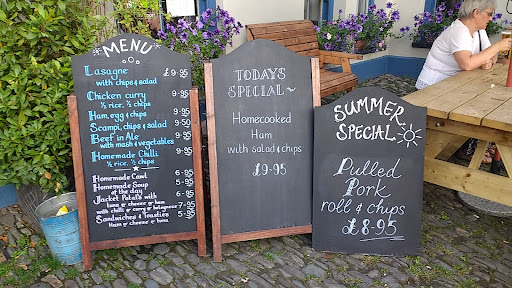 MENU
Lasagne 9.95
with chips and salad
Chicken curry 9.95
½ rice, ½ chips
Ham, egg & chips 9.95
Scampi, chips & salad 9.50
Beef in Ale 9.95
with mash & vegetables
Homemade Chilli 9.95
½ rice ½ chips
Homemade Cawl 7.95
Homemade Soup 5.95
of the day
Jacket Potato with
tuna or cheese or ham 6.95
with chilli or curry or bolognese 7.95
Sandwiches & Toasties 5.95
Ham or cheese or tuna
TODAYS
SPECIAL~
Homecooked
Ham
with salad & chips
£9.95
SUMMER
SPECIAL
Pulled
Pork
roll & chips
£8.95